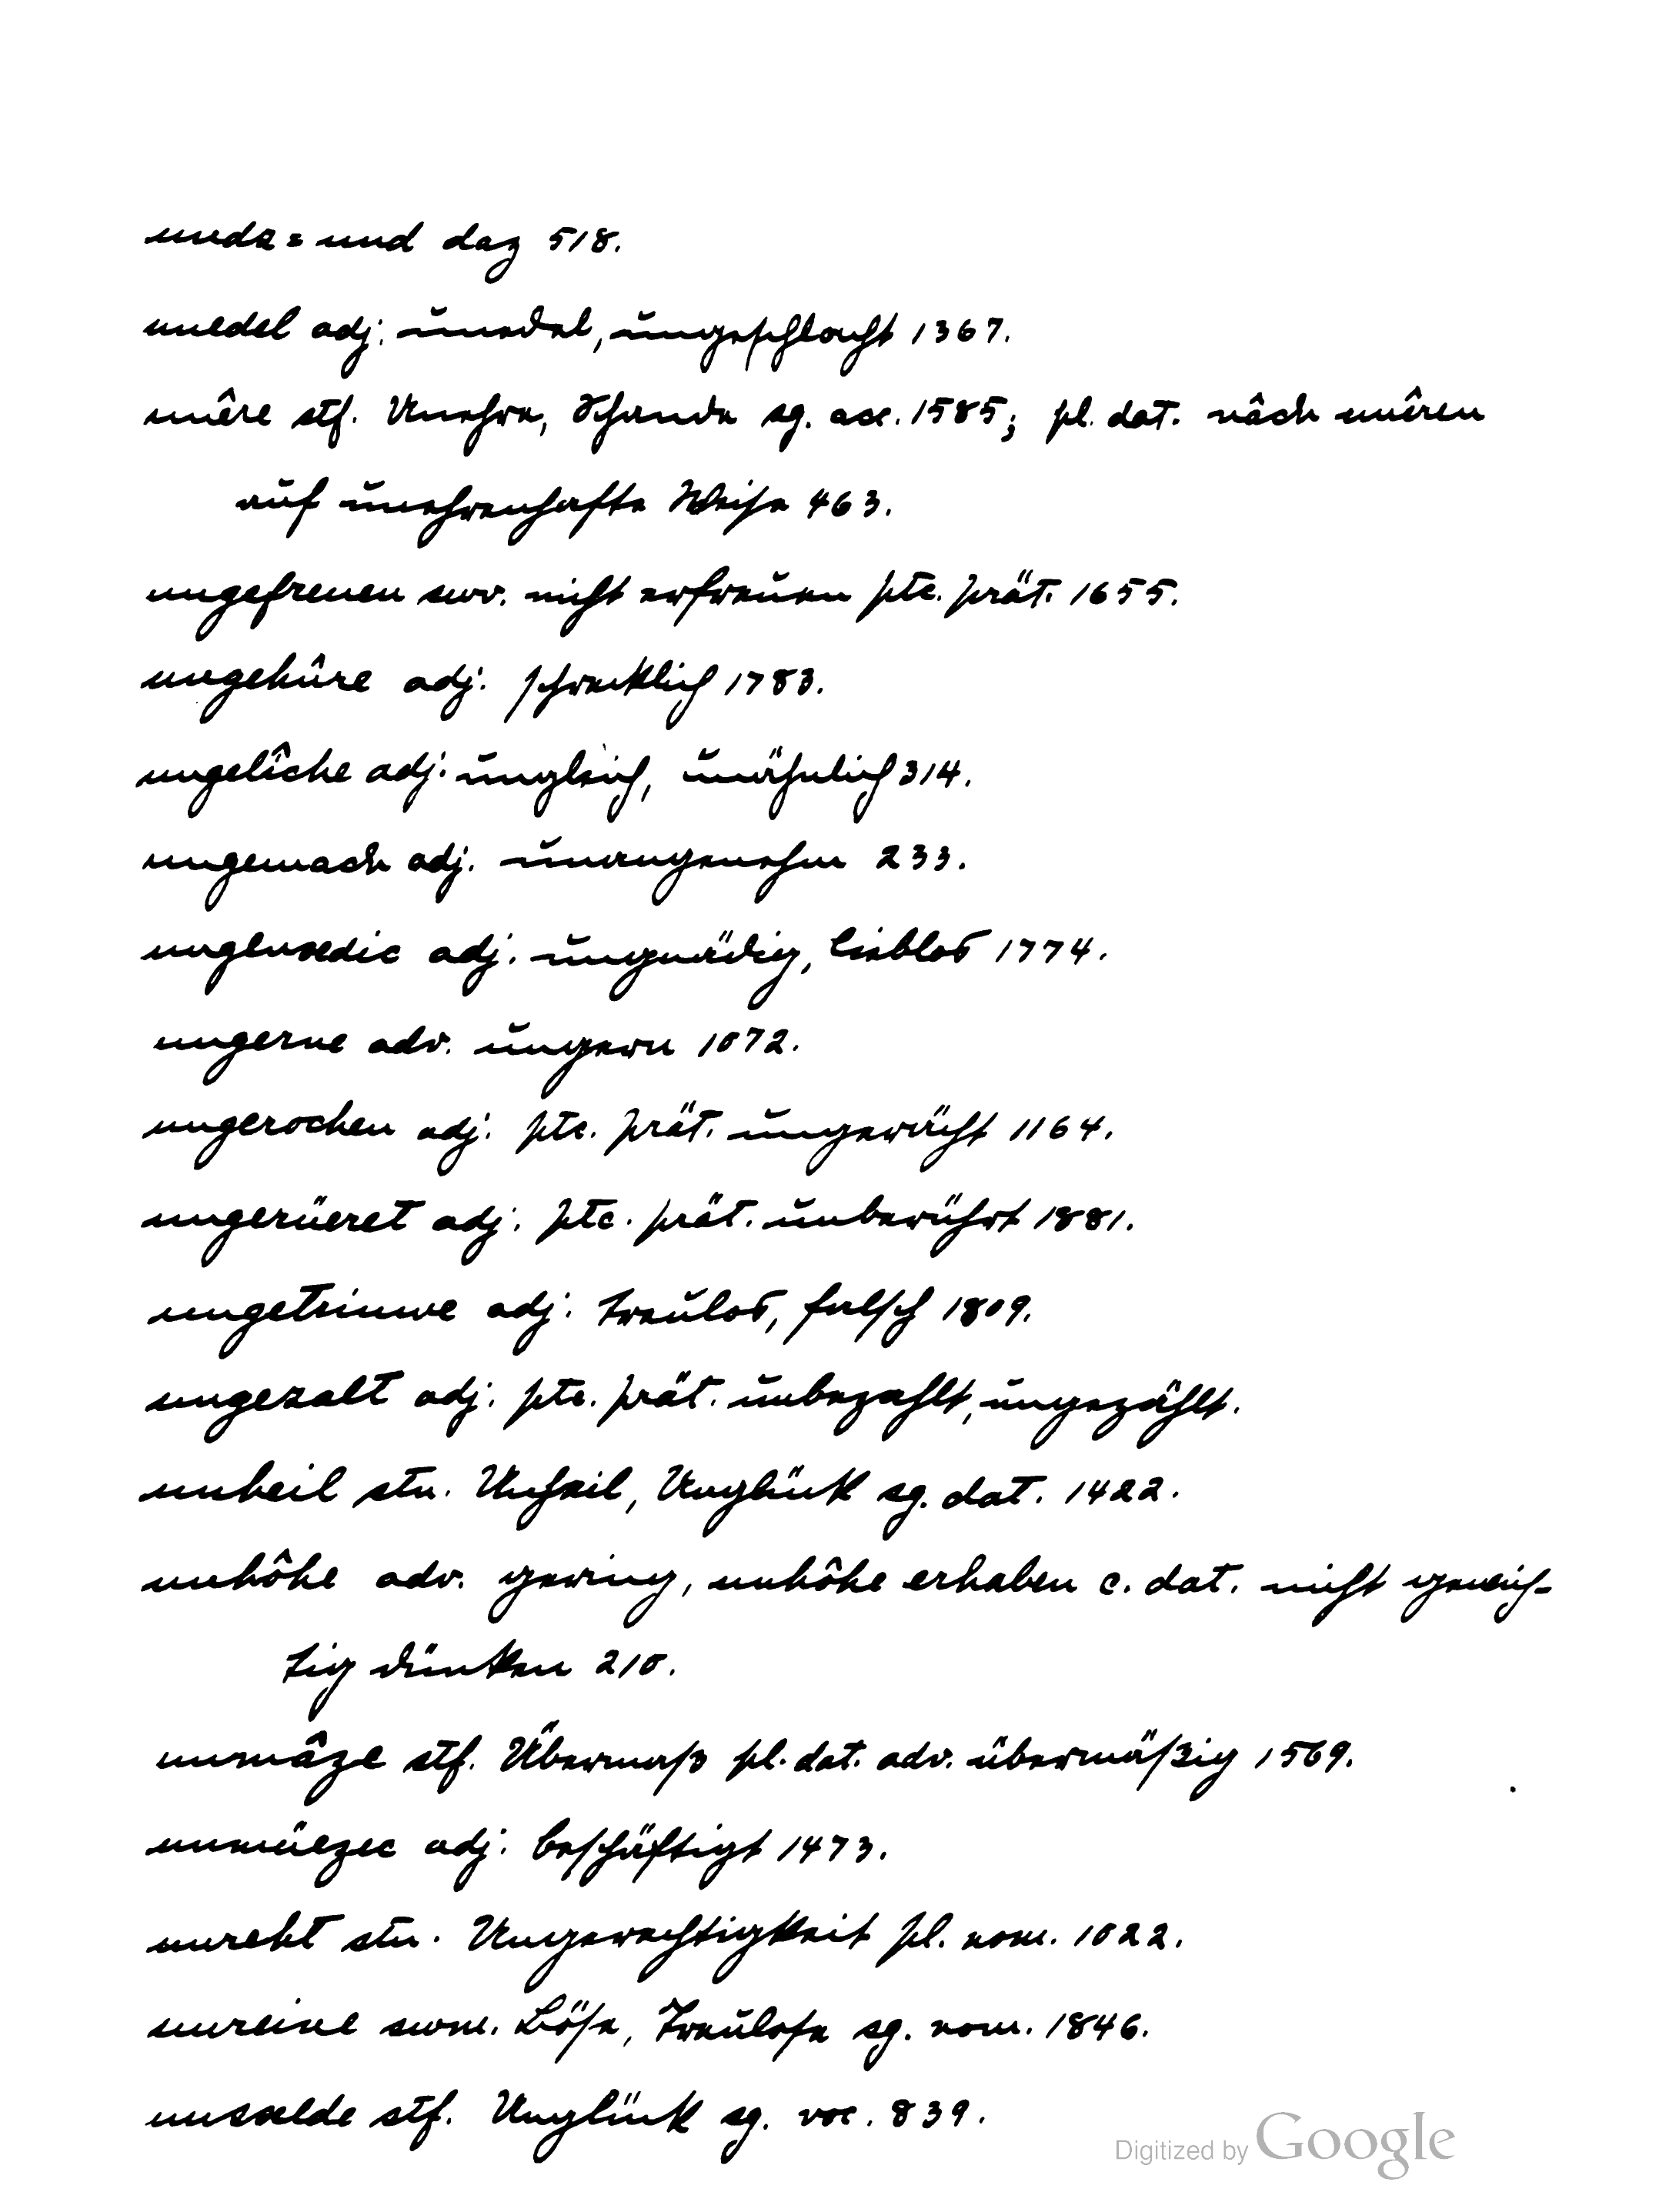 undz = und daz 518.
unedel adj. unedel, ungeschlacht 1367.
unêre stf. Unehre, Schande sg. acc. 1585; pl. dat. nâch unêren
auf unehrenhafte Weise 463.
ungefreuen swv. nicht erfreuen ptc. prät. 1655.
ungehûre adj. schrecklich 1783.
ungelîche adj. ungleich, unähnlich 314.
ungemach adj. unangenehm 233.
ungenædic adj. ungnädig, lieblos 1774.
ungerne adv. ungern 1072.
ungerochen adj. ptc. prät. ungerächt 1164.
ungerüeret adj. ptc. prät. unberührt 1881.
ungetriuwe adj. treulos, falsch 1809.
ungezalt adj. ptc. prät. unbezahlt, ungezählt.
unheil stn. Unheil, Unglück sg. dat. 1422.
unhôhe adv. gering, unhôhe erhaben c. dat. nicht gewich-
tig dünken 210.
unmâze stf. Übermaß pl. dat. adv. übermäßig 1569.
unmüezec adj. beschäftigt 1473.
unreht stn. Ungerechtigkeit pl. nom. 1022.
unreine swm. Böse, Treulose sg. nom. 1846.
unsælde stf. Unglück sg. voc. 839.
Digitized by Google